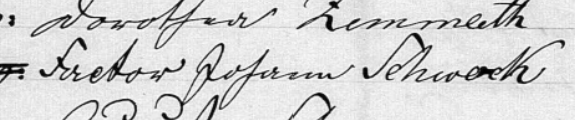 : Dorothea Zemmeith
: Factor Johann Schwock